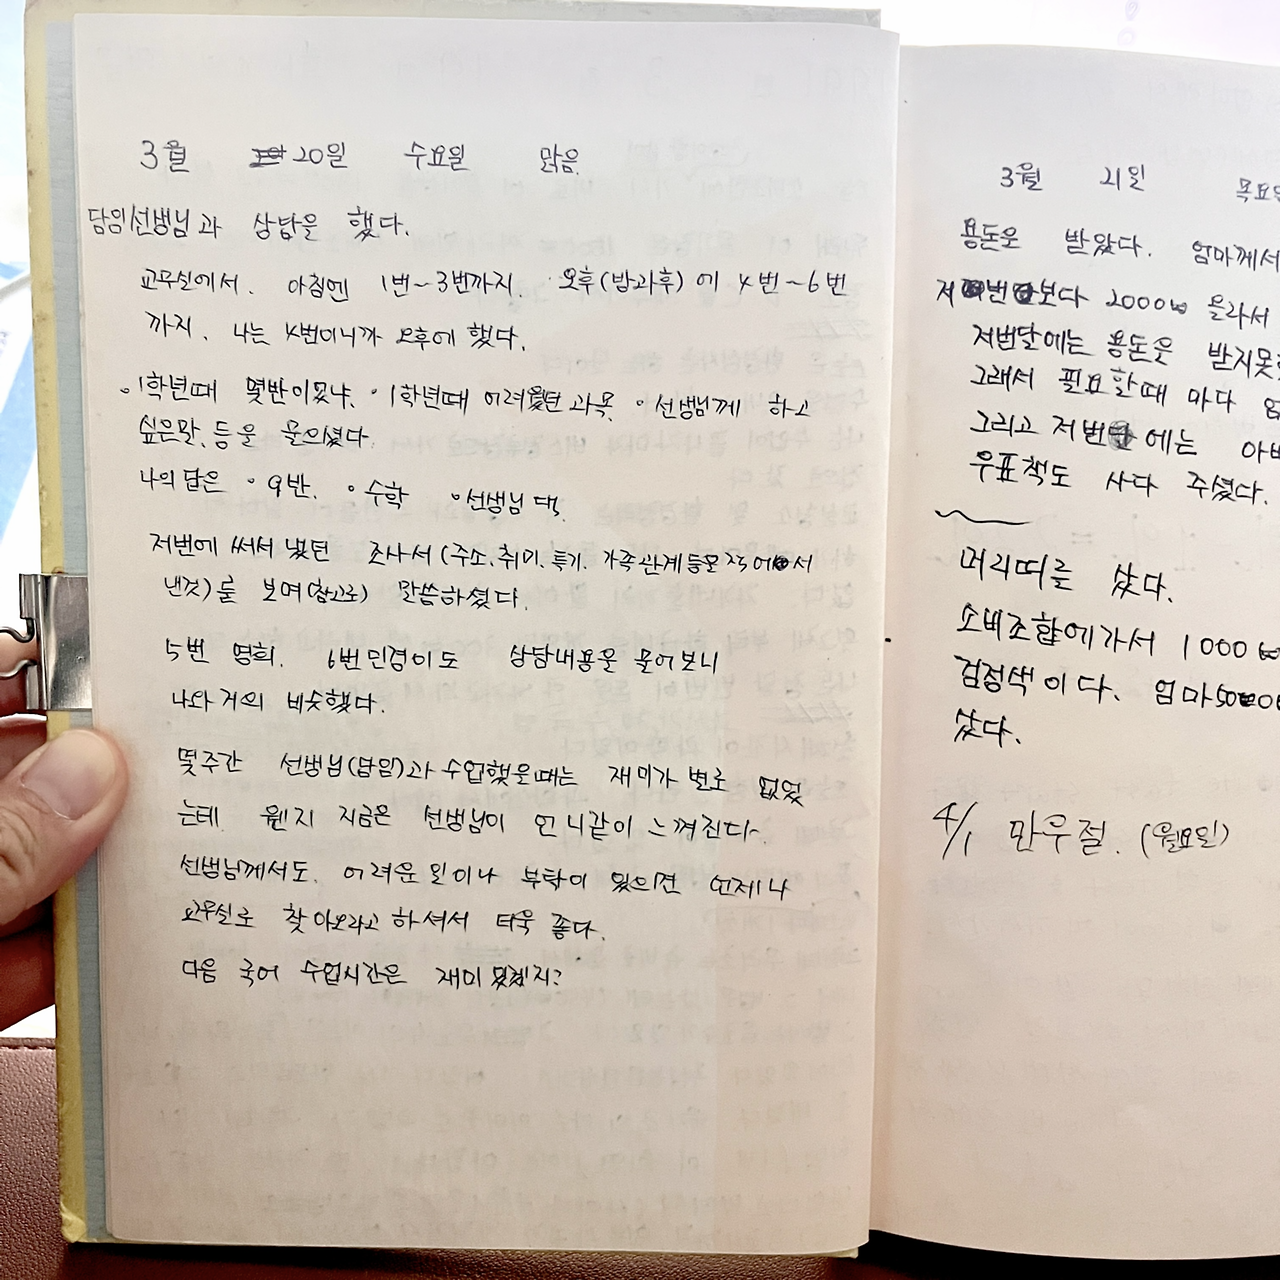 3월 20일 수요일 맑음.
담임선생님과 상담을 했다.
교무실에서. 아침엔 1번~3번까지. 오후(방과후)에 4번~6번
까지. 나는 4번이니까 오후에 했다.
◦1학년때 몇반이었냐, ◦1학년때 어려웠던 과목, ◦선생님께 하고
싶은말, 등을 물으셨다.
나의 답은 ◦9반. ◦수학 ◦선생님
저번에 써서 냈던 조사서(주소, 취미, 특기, 가족관계등을 적어서
낸것)를 보며(참고로) 말씀하셨다.
5번 영희, 6번 민경이도 상담내용을 물어보니
나와 거의 비슷했다.
몇주간 선생님(담임)과 수업했을때는 재미가 별로 없었
는데. 웬지 지금은 선생님이 언니같이 느껴진다~
선생님께서도. 어려운일이나 부탁이 있으면 언제나
교무실로 찾아오라고 하셔서 더욱 좋다.
다음 국어 수업시간은 재미 있겠지?
3월 21일 목요일
용돈을 받았다. 엄마께서
저번보다 2000₩ 올라서
저번달에는 용돈을 받지못
그래서 필요할때 마다
그리고 저번에는
우표책도 사다 주셨다.
머리띠를 샀다.
소비조합에가서 1000₩
검정색이다. 엄마
샀다.
4/1 만우절. (월요일)